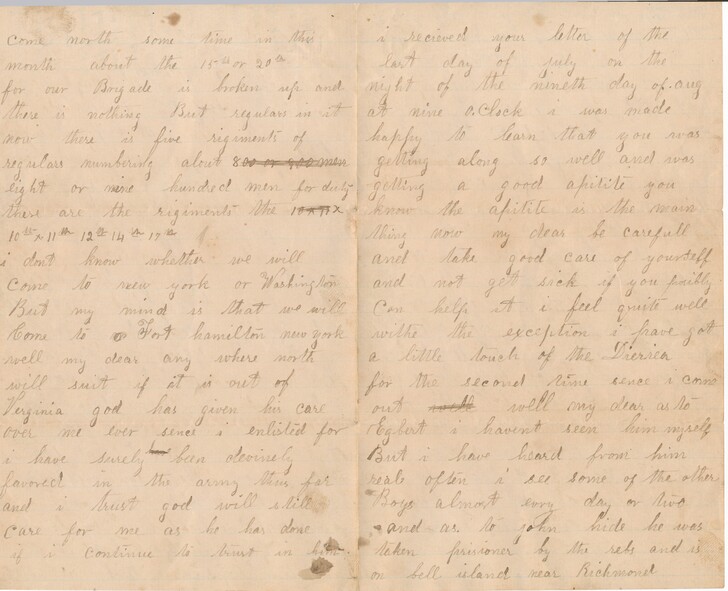 come north some time in this
month about the 15th or 20th
for our Brigade is broken up and
there is nothing But regulars in it
now there is five rigiments of
regulars numbering about 800 or 900 men
eight or nine hundred men for duty
there are the rigiments the
10th x 11th 12th 14th 17th
i dont know whether we will
Come to new york or Washington
But my mind is that we will
Come to Fort hamilton new york
well my dear any where north
will suit if it is out of
Virginia god has given his care
over me ever sence i enlisted for
i have surely been devinely
favored in the army thus far
and i trust god will still
Care for me as he has done
if i continue to trust in him
i recieved your letter of the
last day of july on the
night of the nineth day of aug
at nine o.Clock i was made
happy to learn that you was
getting along so well and was
getting a good apitite you
know the apitite is the main
thing now my dear be carefull
and take good care of yourself
and not get sick if you posibly
Can help it i feel quite well
withe the exception i have got
a little touch of the Dierrea
for the second time sence i come
out well my dear as to
Egbert i havent seen him myself
But i have heard from him
reale often i see some of the other
Boys almost evry day or two
and as to john hide he was
taken prisioner by the rebs and is
on bell island near Richmond